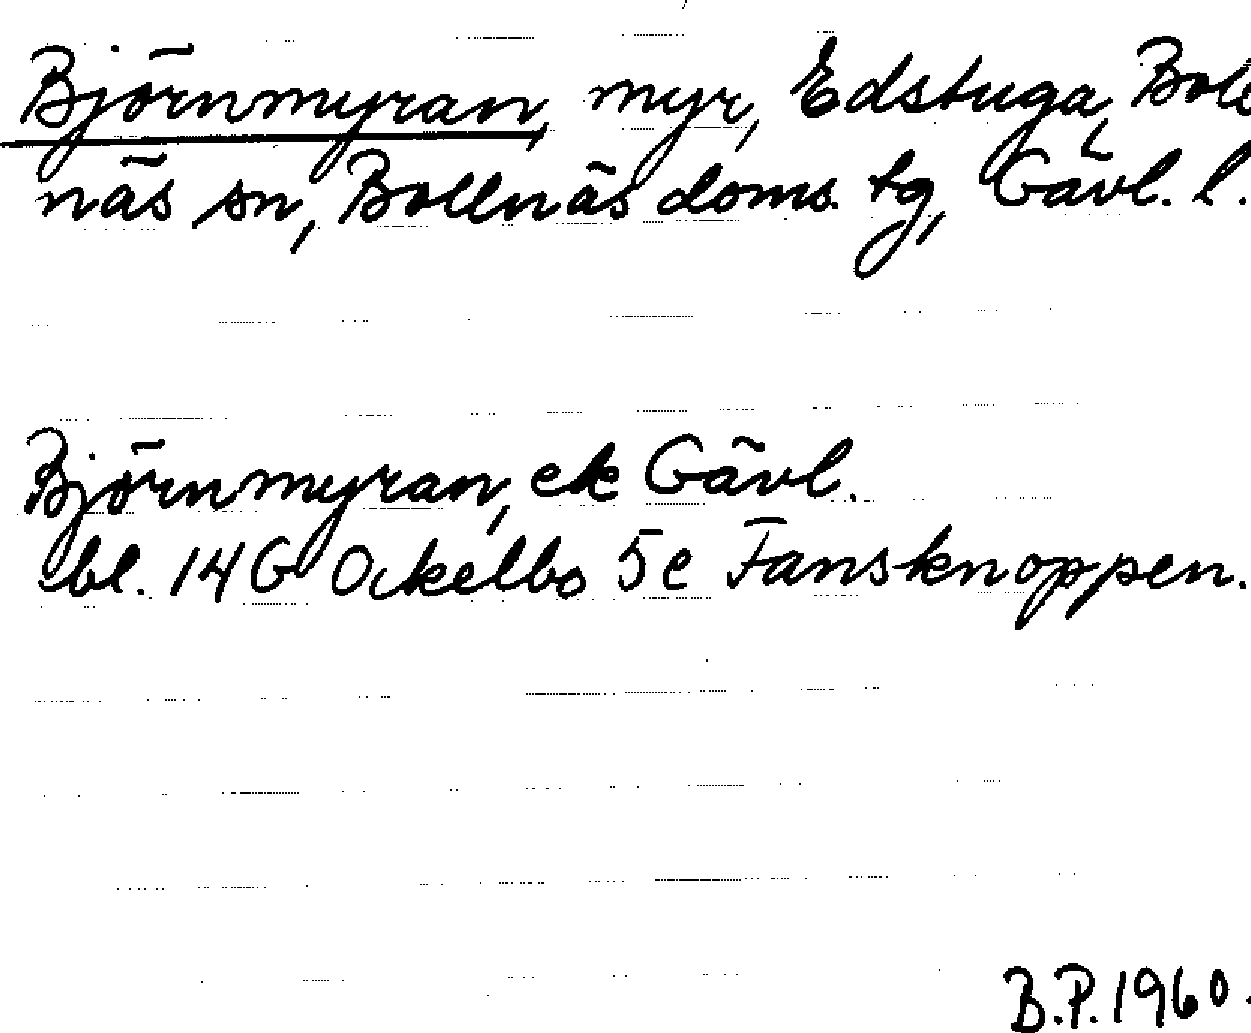 Björnmyran, myr, Edstuga, Boll
näs sn, Bollnäs doms. tg, Gävl. l.
Björnmyran, ek Gävl.
bl. 14 G Ockelbo 5 e Fansknoppen.
B.P. 1960.